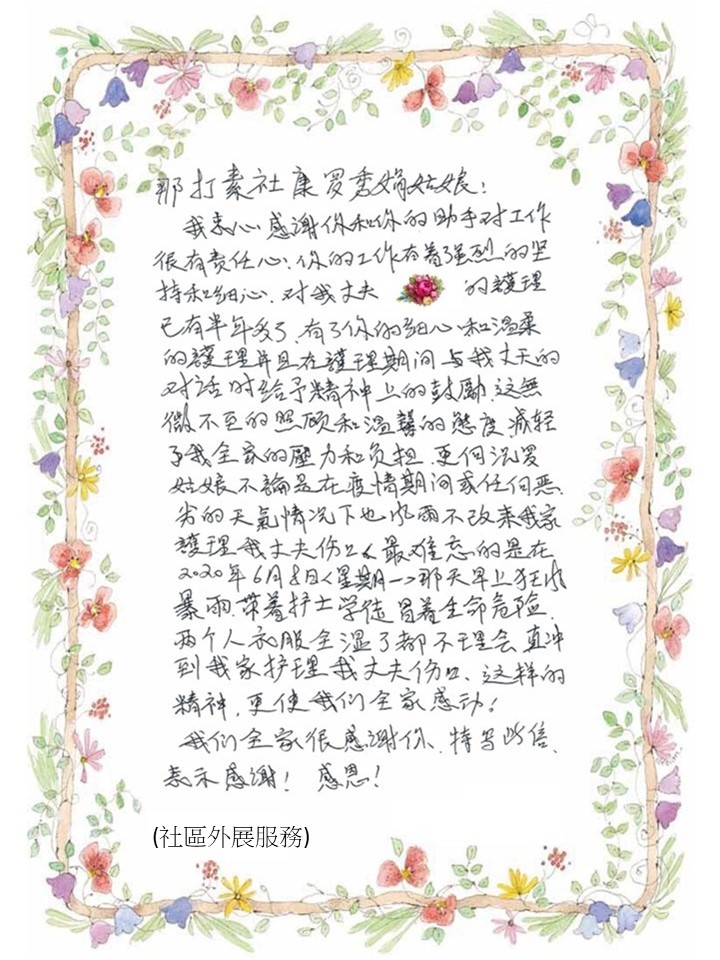 那打素社康罗秀娟姑娘:
我衷心感谢你和你的助手对工作
很有责任心:你的工作有着强烈的坚
持和细心.对我丈夫 的護理
已有半年多了.有了你的细心和温柔
的護理并且在護理期间与我丈夫的
对话时给予精神上的鼓励.这無
微不至的照顾和温馨的態度减轻
了我全家的壓力和负担.更何况罗
姑娘不論是在疫情期间或任何恶
劣的天氣情况下也风雨不改来我家
護理我丈夫伤口.最难忘的是在
2020年6月8日<星期一>那天早上狂风
暴雨.带着护士学徒冒着生命危险.
两个人衣服全湿了都不理会直冲
到我家护理我丈夫伤口.这样的
精神.更使我们全家感动!
我们全家很感谢你.特写此信.
表示感谢! 感恩!
(社區外展服務)